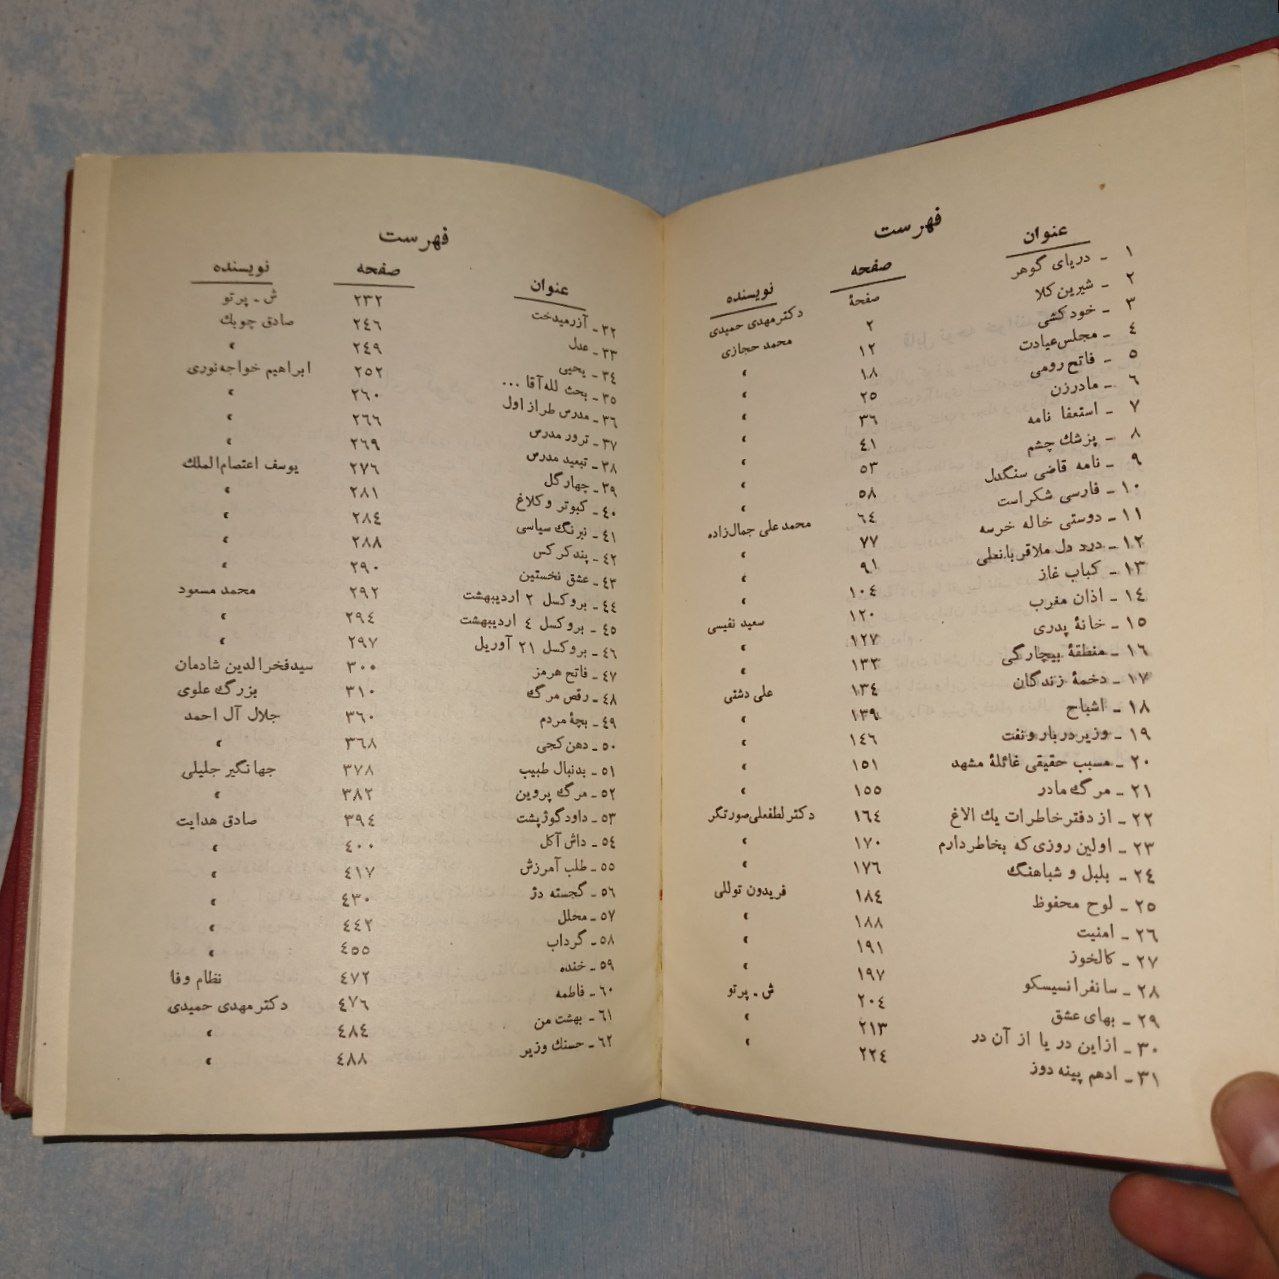 فهرست
عنوان صفحه نویسنده
۱ ـ دریای گوهر صفحهٔ دکترمهدی حمیدی
۲ ـ شیرین کلا ۲ محمد حجازی
۳ ـ خودکشی ۱۲ ‹
۴ ـ مجلس عیادت ۱۸ ‹
۵ ـ فاتح رومی ۲۵ ‹
۶ ـ مادرزن ۳۶ ‹
۷ ـ استعفا نامه ۴۱ ‹
۸ ـ پزشك چشم ۵۳ ‹
۹ ـ نامه قاضی سنگدل ۵۸ ‹
۱۰ ـ فارسی شکراست ۶۴ محمدعلی جمال‌زاده
۱۱ ـ دوستی خاله خرسه ۷۷ ‹
۱۲ ـ درد دل ملاقربانعلی ۹۱ ‹
۱۳ ـ کباب غاز ۱۰٤ ‹
۱٤ ـ اذان مغرب ۱۲۰ سعید نفیسی
۱۵ ـ خانهٔ پدری ۱۲۷ ‹
۱۶ ـ منطقهٔ بیچارگی ۱۳۲ ‹
۱۷ ـ دخمهٔ زندگان ۱۳٤ علی دشتی
۱۸ ـ اشباح ۱۳۹ ‹
۱۹ ـ وزیردربار و نفت ۱٤۶ ‹
۲۰ ـ مسبب حقیقی غائلهٔ مشهد ۱۵۱ ‹
۲۱ ـ مرگ مادر ۱۵۵ ‹
۲۲ ـ از دفتر خاطرات یك الاغ ۱۶٤ دکترلطفعلی صورتگر
۲۳ ـ اولین روزی که بخاطردارم ۱۷۰ ‹
۲٤ ـ بلبل و شباهنگ ۱۷۶ ‹
۲۵ ـ لوح محفوظ ۱۸٤ فریدون توللی
۲۶ ـ امنیت ۱۸۸ ‹
۲۷ ـ کالخوز ۱۹۱ ‹
۲۸ ـ سانفرانسیسکو ۱۹۷ ‹
۲۹ ـ بهای عشق ۲۰٤ ش ـ پرتو
۳۰ ـ ازاین در یا از آن در ۲۱۳ ‹
۳۱ ـ ادهم پینه دوز ۲۲٤ ‹
فهرست
عنوان صفحه نویسنده
۳۲ ـ آزرمیدخت ۲۳۲ ش ـ پرتو
۳۳ ـ عدل ۲٤۶ صادق چوبك
۳٤ ـ یحیی ۲٤۹ ‹
۳۵ ـ بحث لله‌آقا ... ۲۵۲ ابراهیم خواجه‌نوری
۳۶ ـ مدرس طراز اول ۲۶۰ ‹
۳۷ ـ ترور مدرس ۲۶۶ ‹
۳۸ ـ تبعید مدرس ۲۶۹ ‹
۳۹ ـ چهارگل ۲۷۶ یوسف اعتصام‌الملك
٤۰ ـ کبوتر و کلاغ ۲۸۱ ‹
٤۱ ـ نیرنگ سیاسی ۲۸٤ ‹
٤۲ ـ پندکرکس ۲۸۸ ‹
٤۳ ـ عشق نخستین ۲۹۰ ‹
٤٤ ـ بروکسل ۲ اردیبهشت ۲۹۲ محمد مسعود
٤۵ ـ بروکسل ٤ اردیبهشت ۲۹٤ ‹
٤۶ ـ بروکسل ۲۱ آوریل ۲۹۷ ‹
٤۷ ـ فاتح هرمز ۳۰۰ سیدفخرالدین شادمان
٤۸ ـ رقص مرگ ۳۱۰ بزرگ علوی
٤۹ ـ بچهٔ مردم ۳۶۰ جلال آل احمد
۵۰ ـ دهن کجی ۳۶۸ ‹
۵۱ ـ بدنبال طبیب ۳۷۸ جهانگیر جلیلی
۵۲ ـ مرگ پروین ۳۸۲ ‹
۵۳ ـ داودگوژپشت ۳۹٤ صادق هدایت
۵٤ ـ داش آکل ٤۰۰ ‹
۵۵ ـ طلب آمرزش ٤۱۷ ‹
۵۶ ـ گجسته دژ ٤۳۰ ‹
۵۷ ـ محلل ٤٤۲ ‹
۵۸ ـ گرداب ٤۵۵ ‹
۵۹ ـ خنده ٤۷۲ نظام وفا
۶۰ ـ فاطمه ٤۷۶ دکترمهدی حمیدی
۶۱ ـ بهشت من ٤۸٤ ‹
۶۲ ـ حسنك وزیر ٤۸۸ ‹